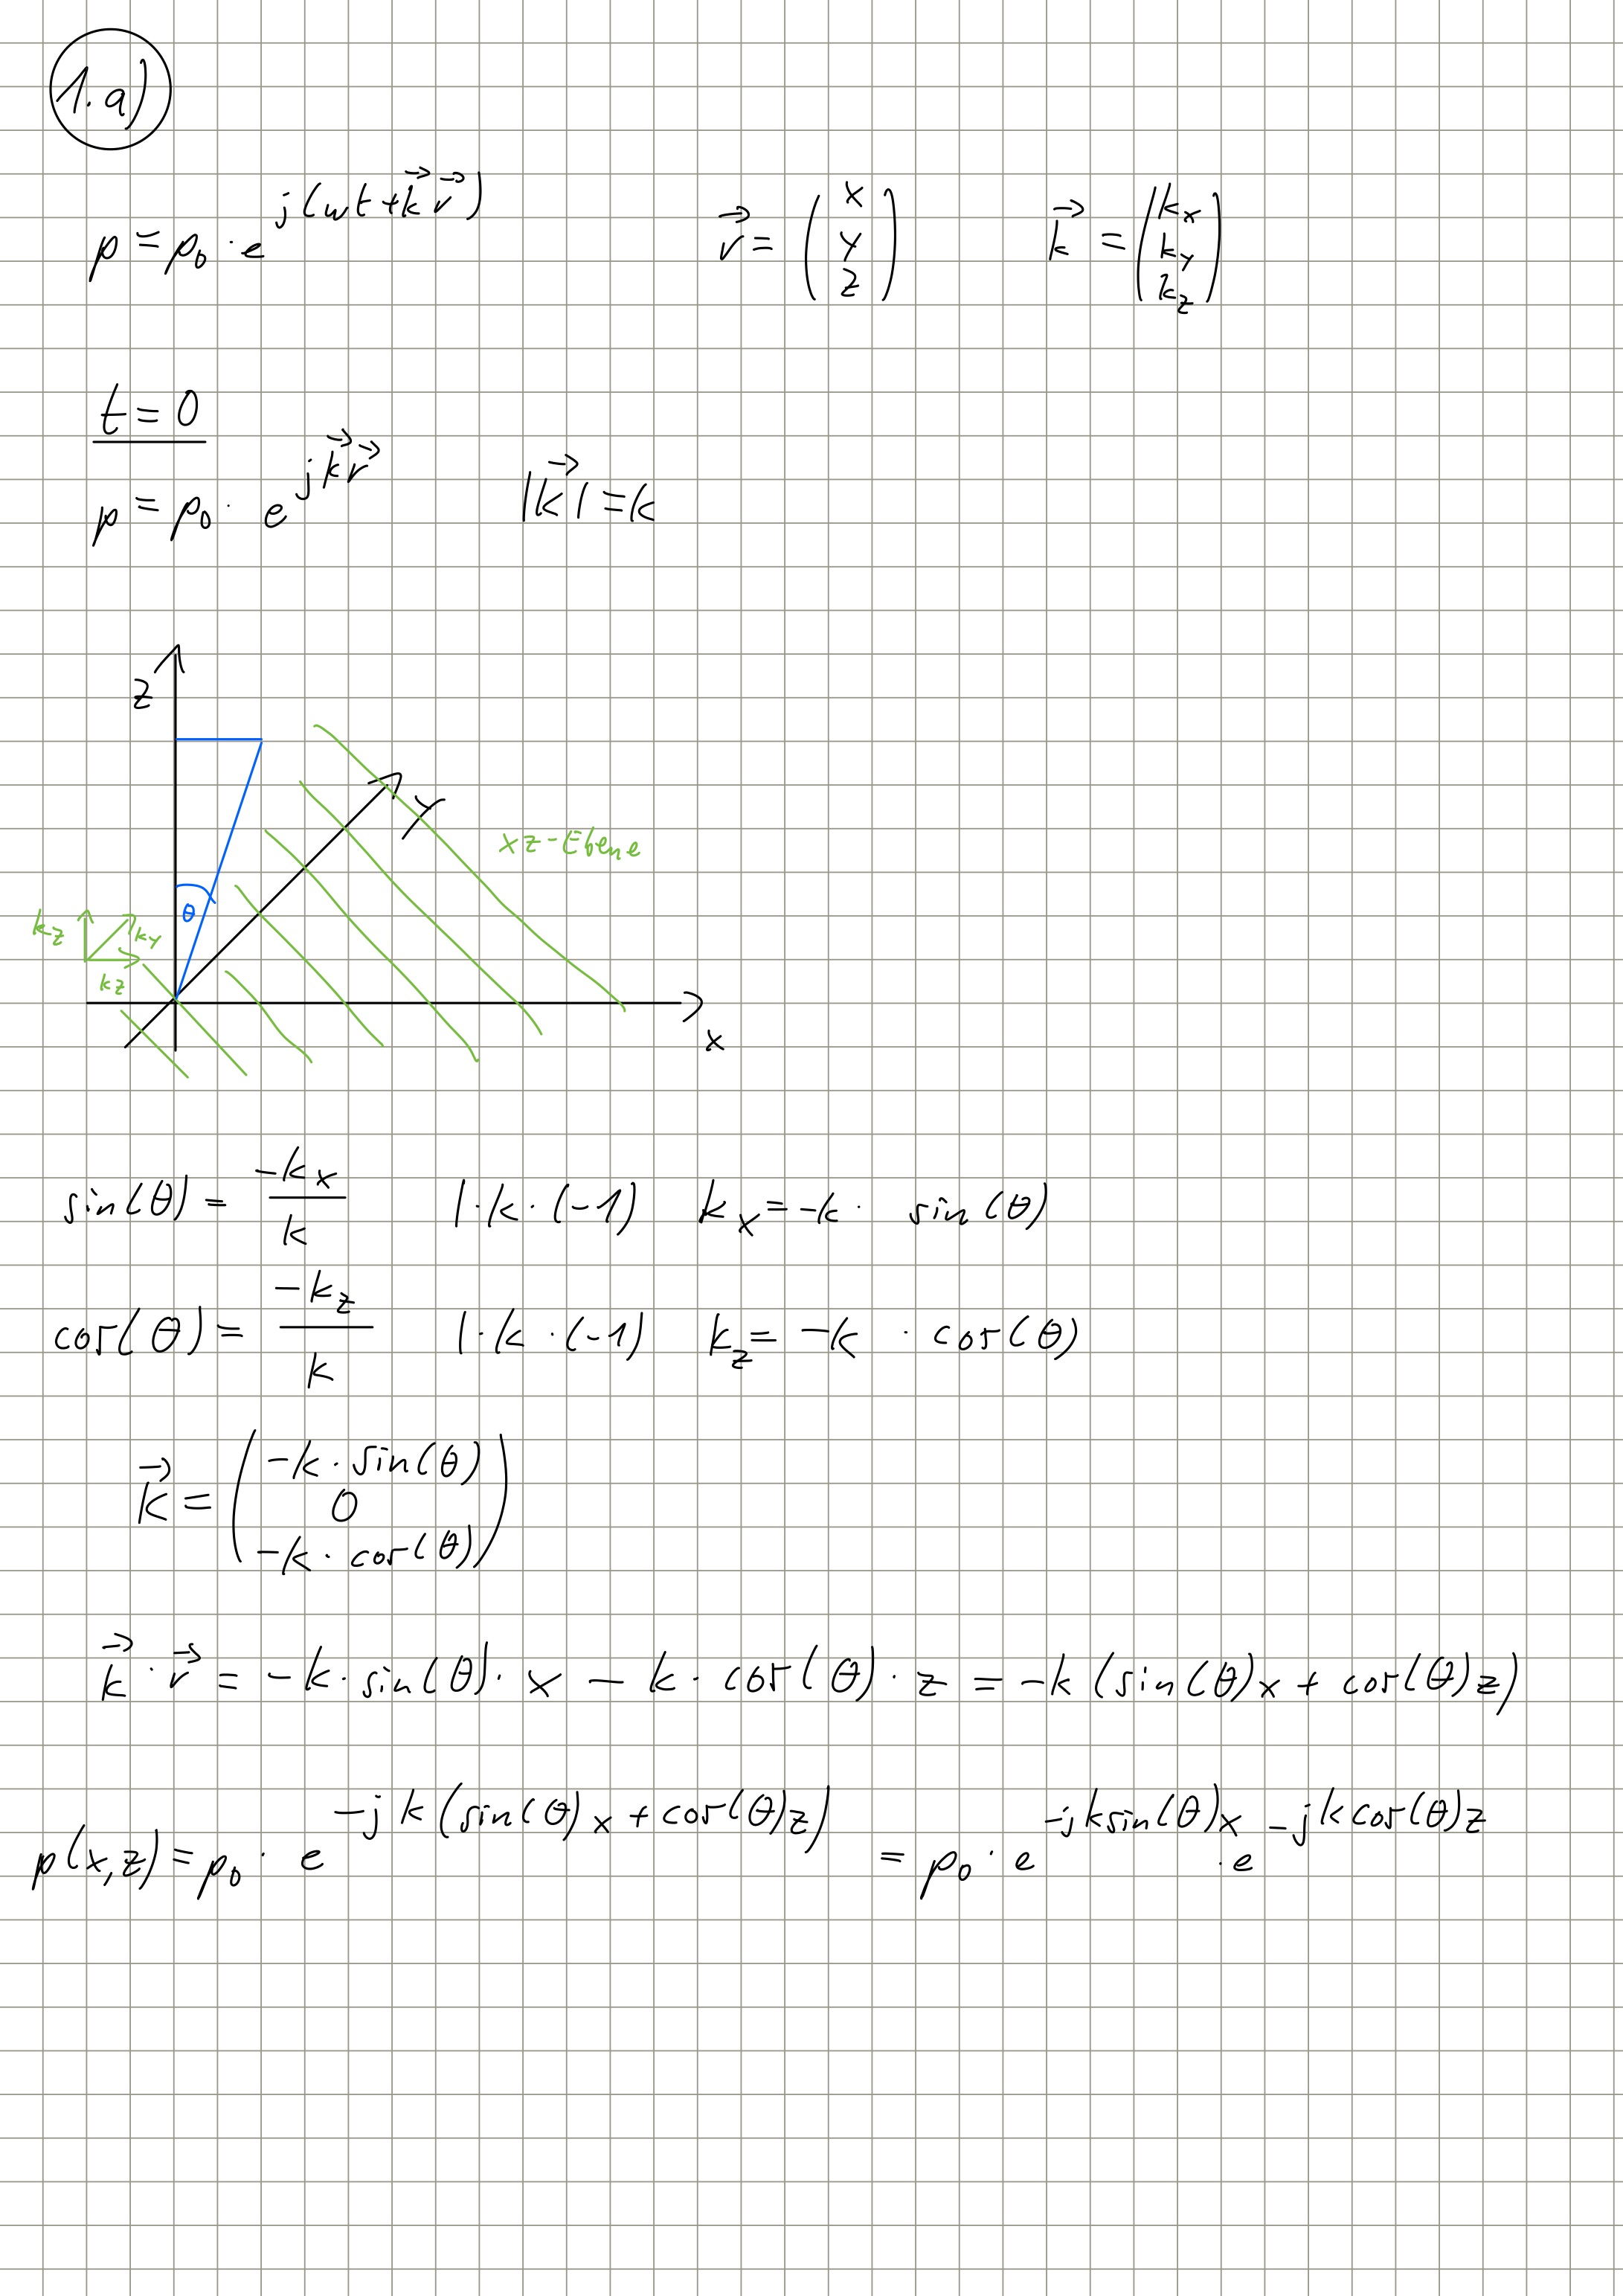 1. a)
p = p₀ · e^{j(ωt + k⃗ r⃗)}    r⃗ = (x y z)    k⃗ = (kₓ k_y k_z)
t = 0
p = p₀ · e^{j k⃗ r⃗}    |k⃗| = k
z
Y
xz-Ebene
θ
k_z
k_y
k_z
x
sin(θ) = -kₓ/k    | · k · (-1)    kₓ = -k · sin(θ)
cos(θ) = -k_z/k    | · k · (-1)    k_z = -k · cos(θ)
k⃗ = (-k · sin(θ) 0 -k · cos(θ))
k⃗ · r⃗ = -k · sin(θ) · x - k · cos(θ) · z = -k (sin(θ)x + cos(θ)z)
p(x,z) = p₀ · e^{-jk(sin(θ)x + cos(θ)z)} = p₀ · e^{-jk sin(θ)x} · e^{-jk cos(θ)z}